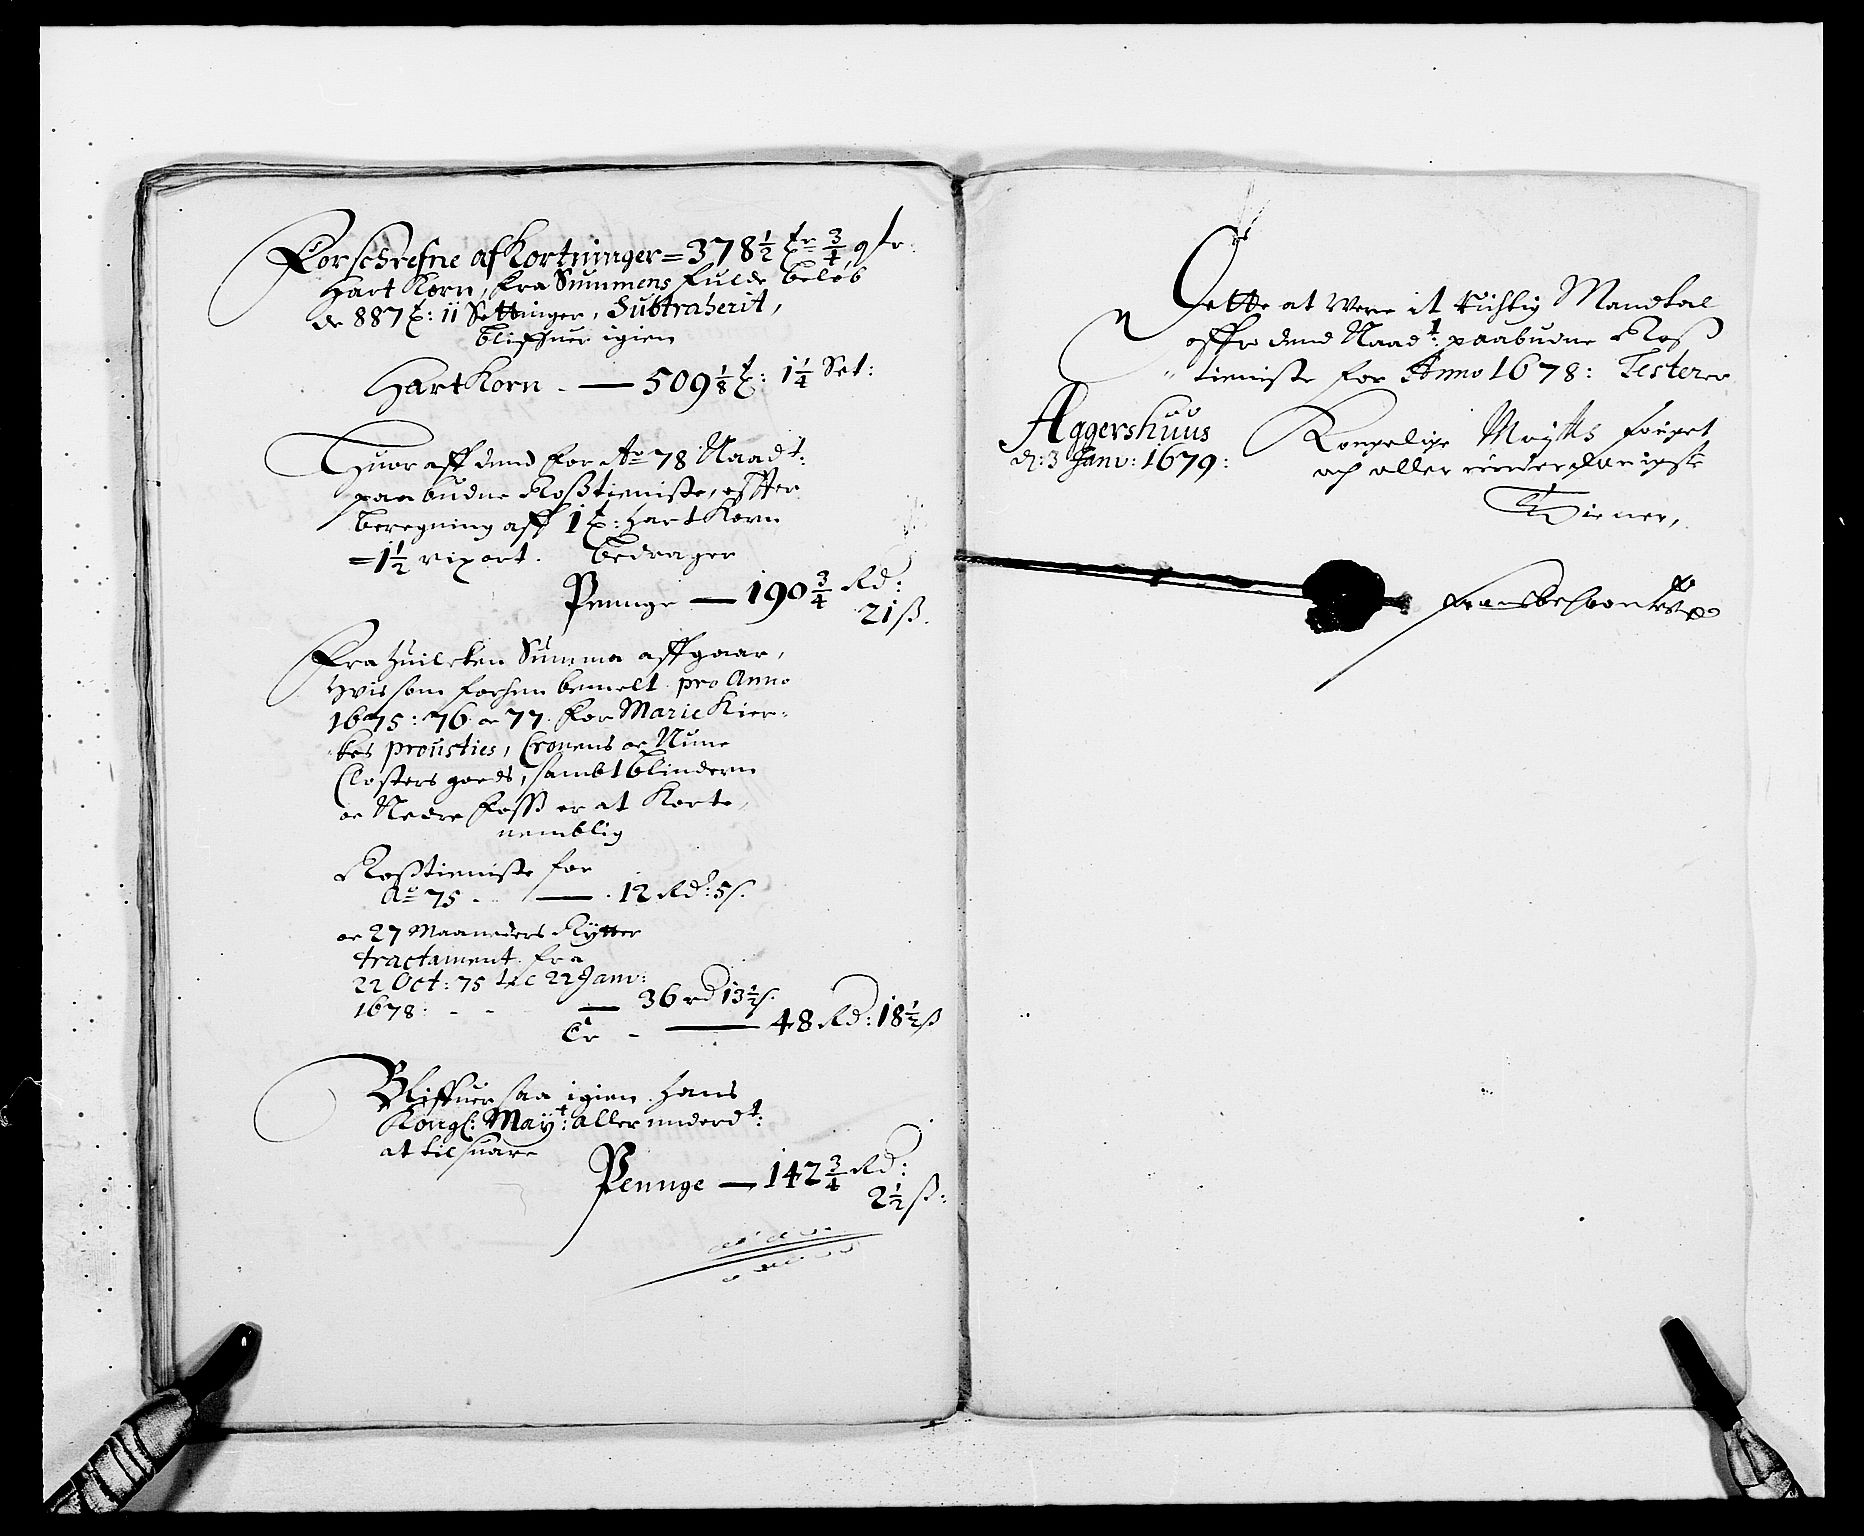 Forschrefne afkortninger = 378½ tr ¾ qtr:
Hart Korn, fra Summens fulde beløb
de 887 t: 11 Settinger, Subtraherit,
bliffuer igien
Hart Korn - — 509⅛ t: 1¼ Set:
Huor aff dend for Ao 78 Naadt:
paabudne Roßtieniste, effter
beregning aff 1 t: hart Korn
= 1½ rixort. bedrager
Pennge — 190¾ Rd:
21 ß.
Fra huilcken Summa affgaar,
hvis som forhen bemelt pro Anno
1675: 76 oc 77. for Marie Kier-
kes prousties, Cronens oc Nunne
Closters goeds, sambt blindern
oc Nedre foss er at Korte,
nemblig
Roßtieniste for
Ao 75 - — 12 Rd: 5 ß.
oc 27 Maaneders Rytter
tractament fra
22 Oct: 75 til 22 Janv:
1678: - - — 36 rd 13½ ß.
Er - — 48 Rd: 18½ ß
Bliffuer saa igien hans
Kongl: Mayt: allerunderdt:
at tilsuare
Pennge — 142¾ Rd:
2½ ß:
Dette at were it richtig Mandtal
offr dend Naadt: paabudne Roß
tieniste for Anno 1678: Testerer
Aggershuus
d: 3 Janv: 1679:
Kongelige Maytts fouget
och aller underdanigste
Tiener,